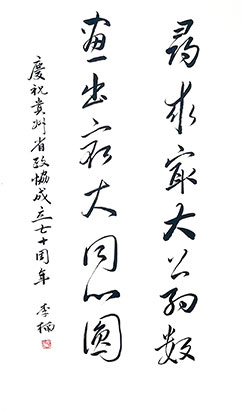 尋求最大公約數
畫出最大同心圓
慶祝貴州省政協成立七十周年 李楠